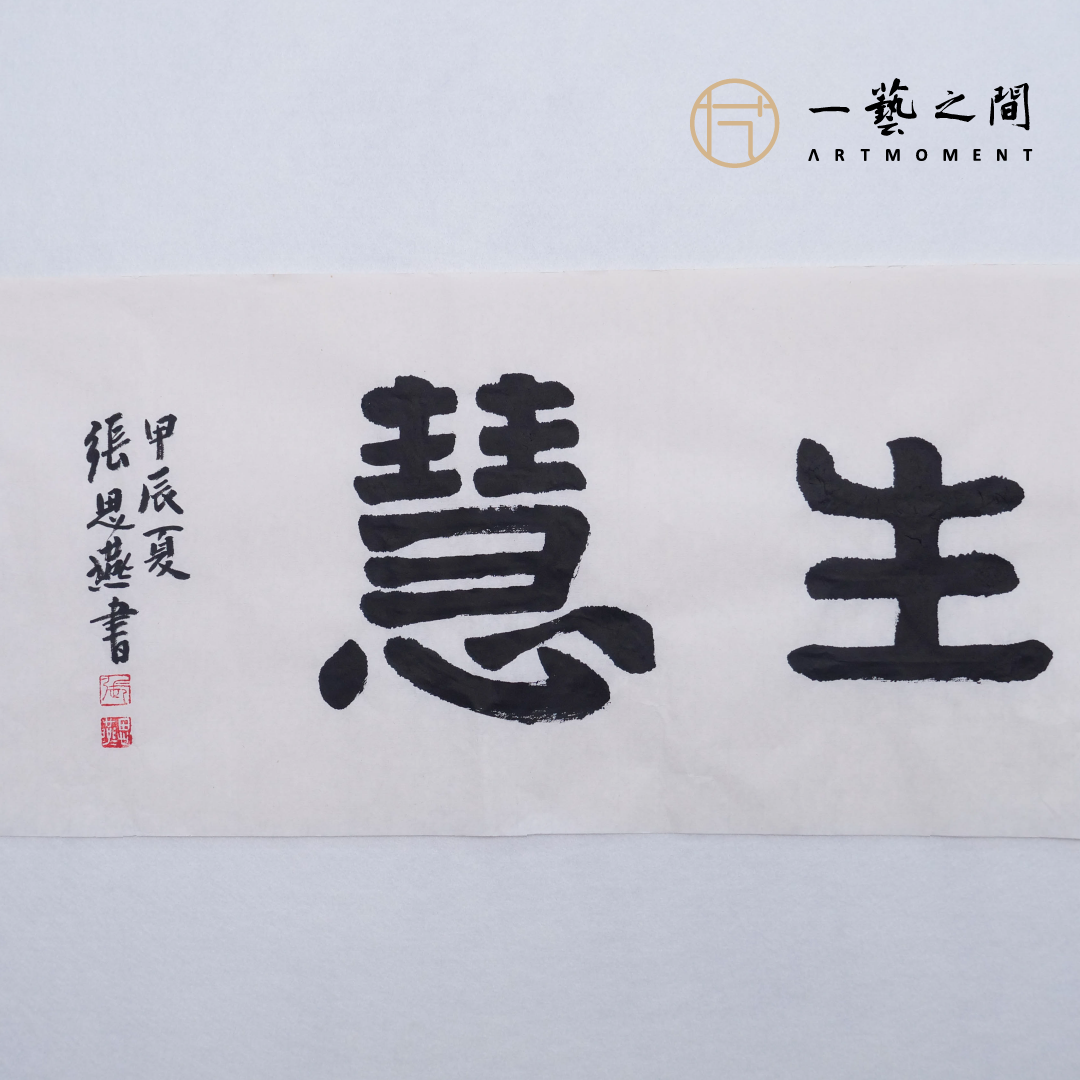 一藝之間
ARTMOMENT
生慧
甲辰夏
張思燕書
張
思燕